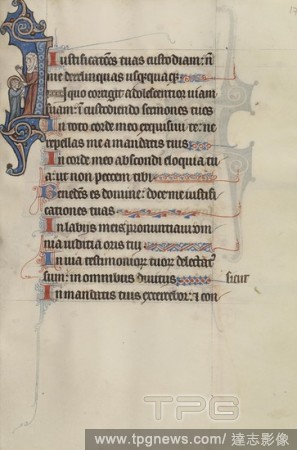 Iustificatões tuas custodiam: ñ
me derelinquas usq̃quaq̃
In quo corrigit adolescentior uiam
suam: in custodiendo sermones tuos
In toto corde meo exquisiui te: ne
repellas me a mandatis tuis
In corde meo abscondi eloquia tu
a: ut non peccem tibi
Benedictus es domine: doce me iustifi
cationes tuas
In labijs meis pronuntiaui om
nia iuditia oris tui
In uia testimonioꝝ tuoꝝ delectatꝰ
sum: in omnibus diuitijs sicut
In mandatis tuis exercebor: ⁊ con
TPG
www.tpgnews.com/達志影像